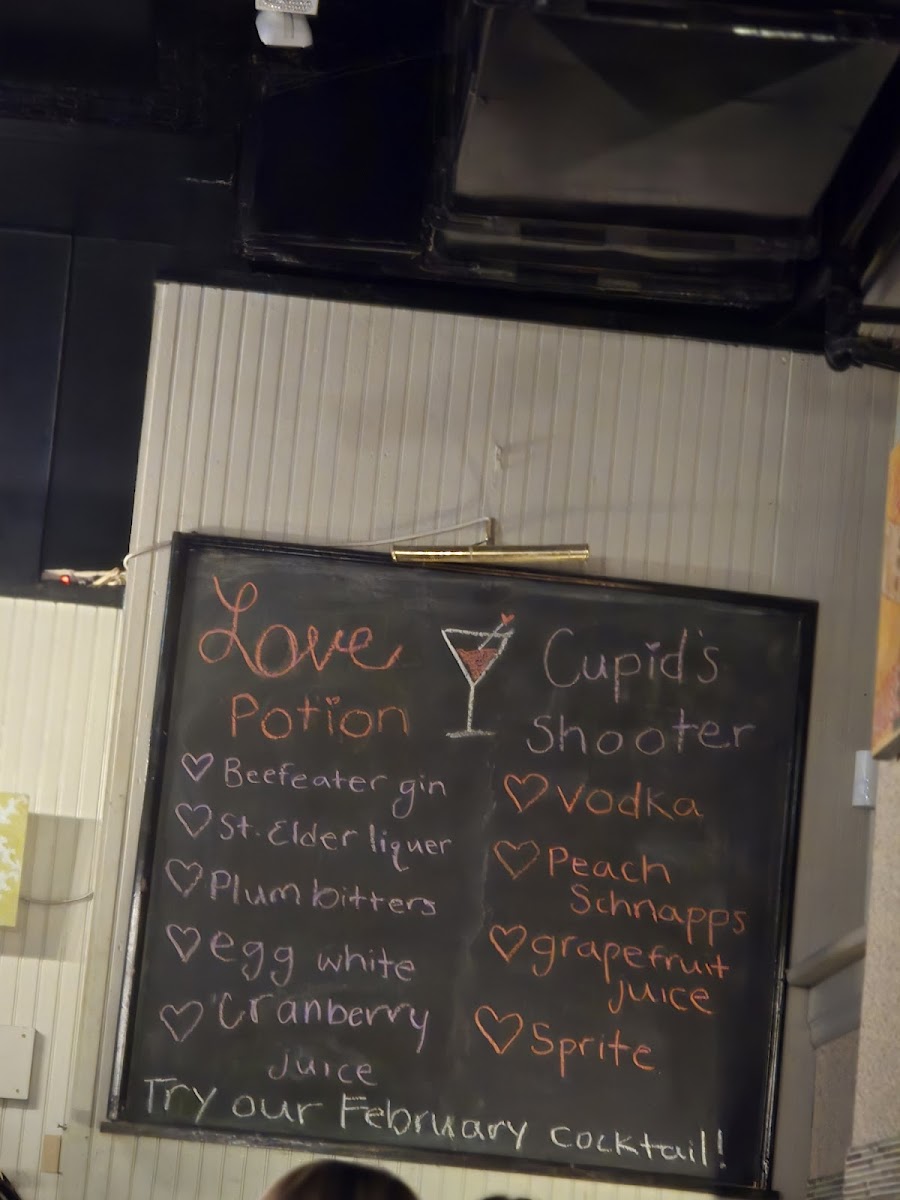 Love
Potion
Beefeater gin
St. Elder liquer
Plum bitters
egg white
Cranberry
juice
Cupid's
Shooter
Vodka
Peach
Schnapps
grapefruit
juice
Sprite
Try our February cocktail!